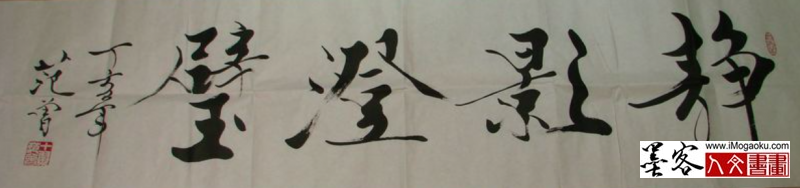 静影澄璧
丁亥年
范曾
墨客
www.iMogaoku.com
人文書畫